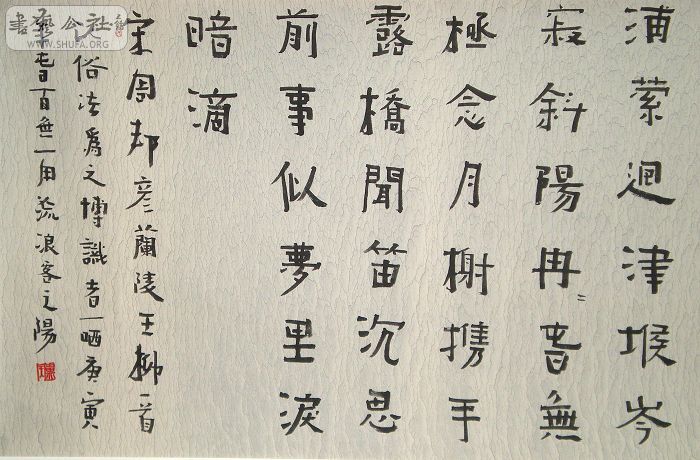 浦萦迴津堠岑
寂斜陽冉〻旾無
極念月榭携手
露橋聞笛沉思
前事似夢里淚
暗滴
宋周邦彦蘭陵王柳一首
俗法爲之博識者一哂庚寅
旾百無一用流浪客之陽
書法公社
WWW.SHUFA.ORG